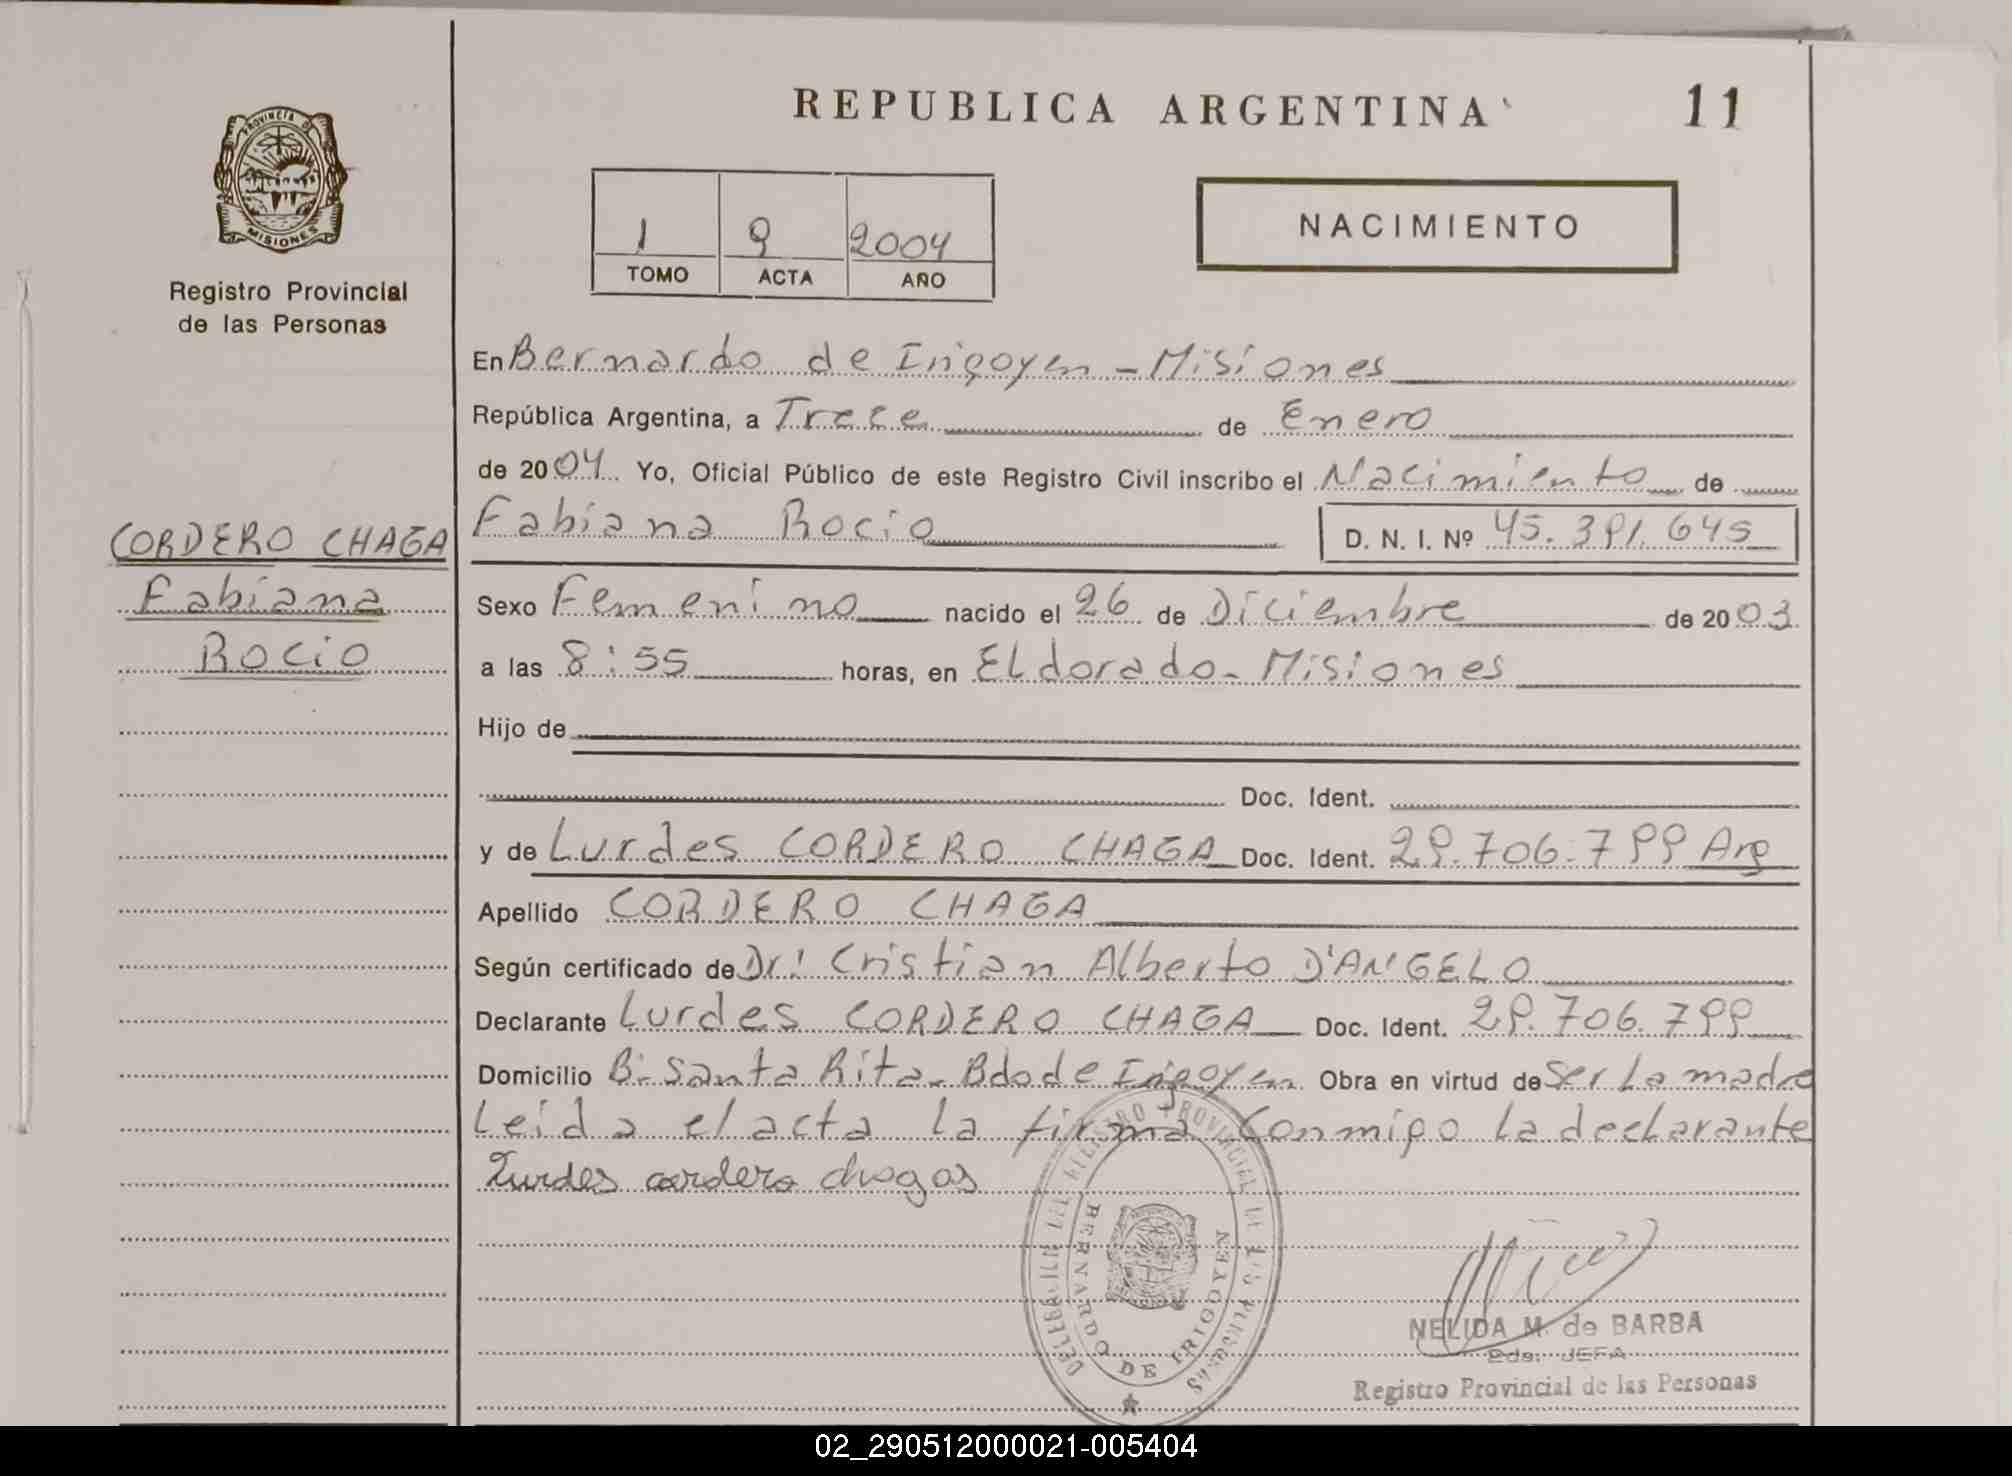 REPUBLICA ARGENTINA
11
PROVINCIA DE
MISIONES
Registro Provincial
de las Personas
1 9 2004
TOMO ACTA AÑO
NACIMIENTO
En Bernardo de Irigoyen - Misiones
República Argentina, a Trece de Enero
de 2004 Yo, Oficial Público de este Registro Civil inscribo el Nacimiento de
Fabiana Rocio D. N. I. Nº 45.391.645
CORDERO CHAGA
Fabiana
Rocio
Sexo Femenino nacido el 26 de Diciembre de 2003
a las 8:55 horas, en Eldorado - Misiones
Hijo de
Doc. Ident.
y de Lurdes CORDERO CHAGA Doc. Ident. 29.706.799 Arg
Apellido CORDERO CHAGA
Según certificado de Dr: Cristian Alberto D'ANGELO
Declarante Lurdes CORDERO CHAGA Doc. Ident. 29.706.799
Domicilio B: Santa Rita - Bdo de Irigoyen Obra en virtud de Ser La madre
Leida el acta la firma Conmigo la declarante
Lurdes cordero chagas
DELEGACION DEL REGISTRO PROVINCIAL DE LAS PERSONAS
BERNARDO DE IRIGOYEN
NELIDA M. de BARBA
JEFA
Registro Provincial de las Personas
02_290512000021-005404